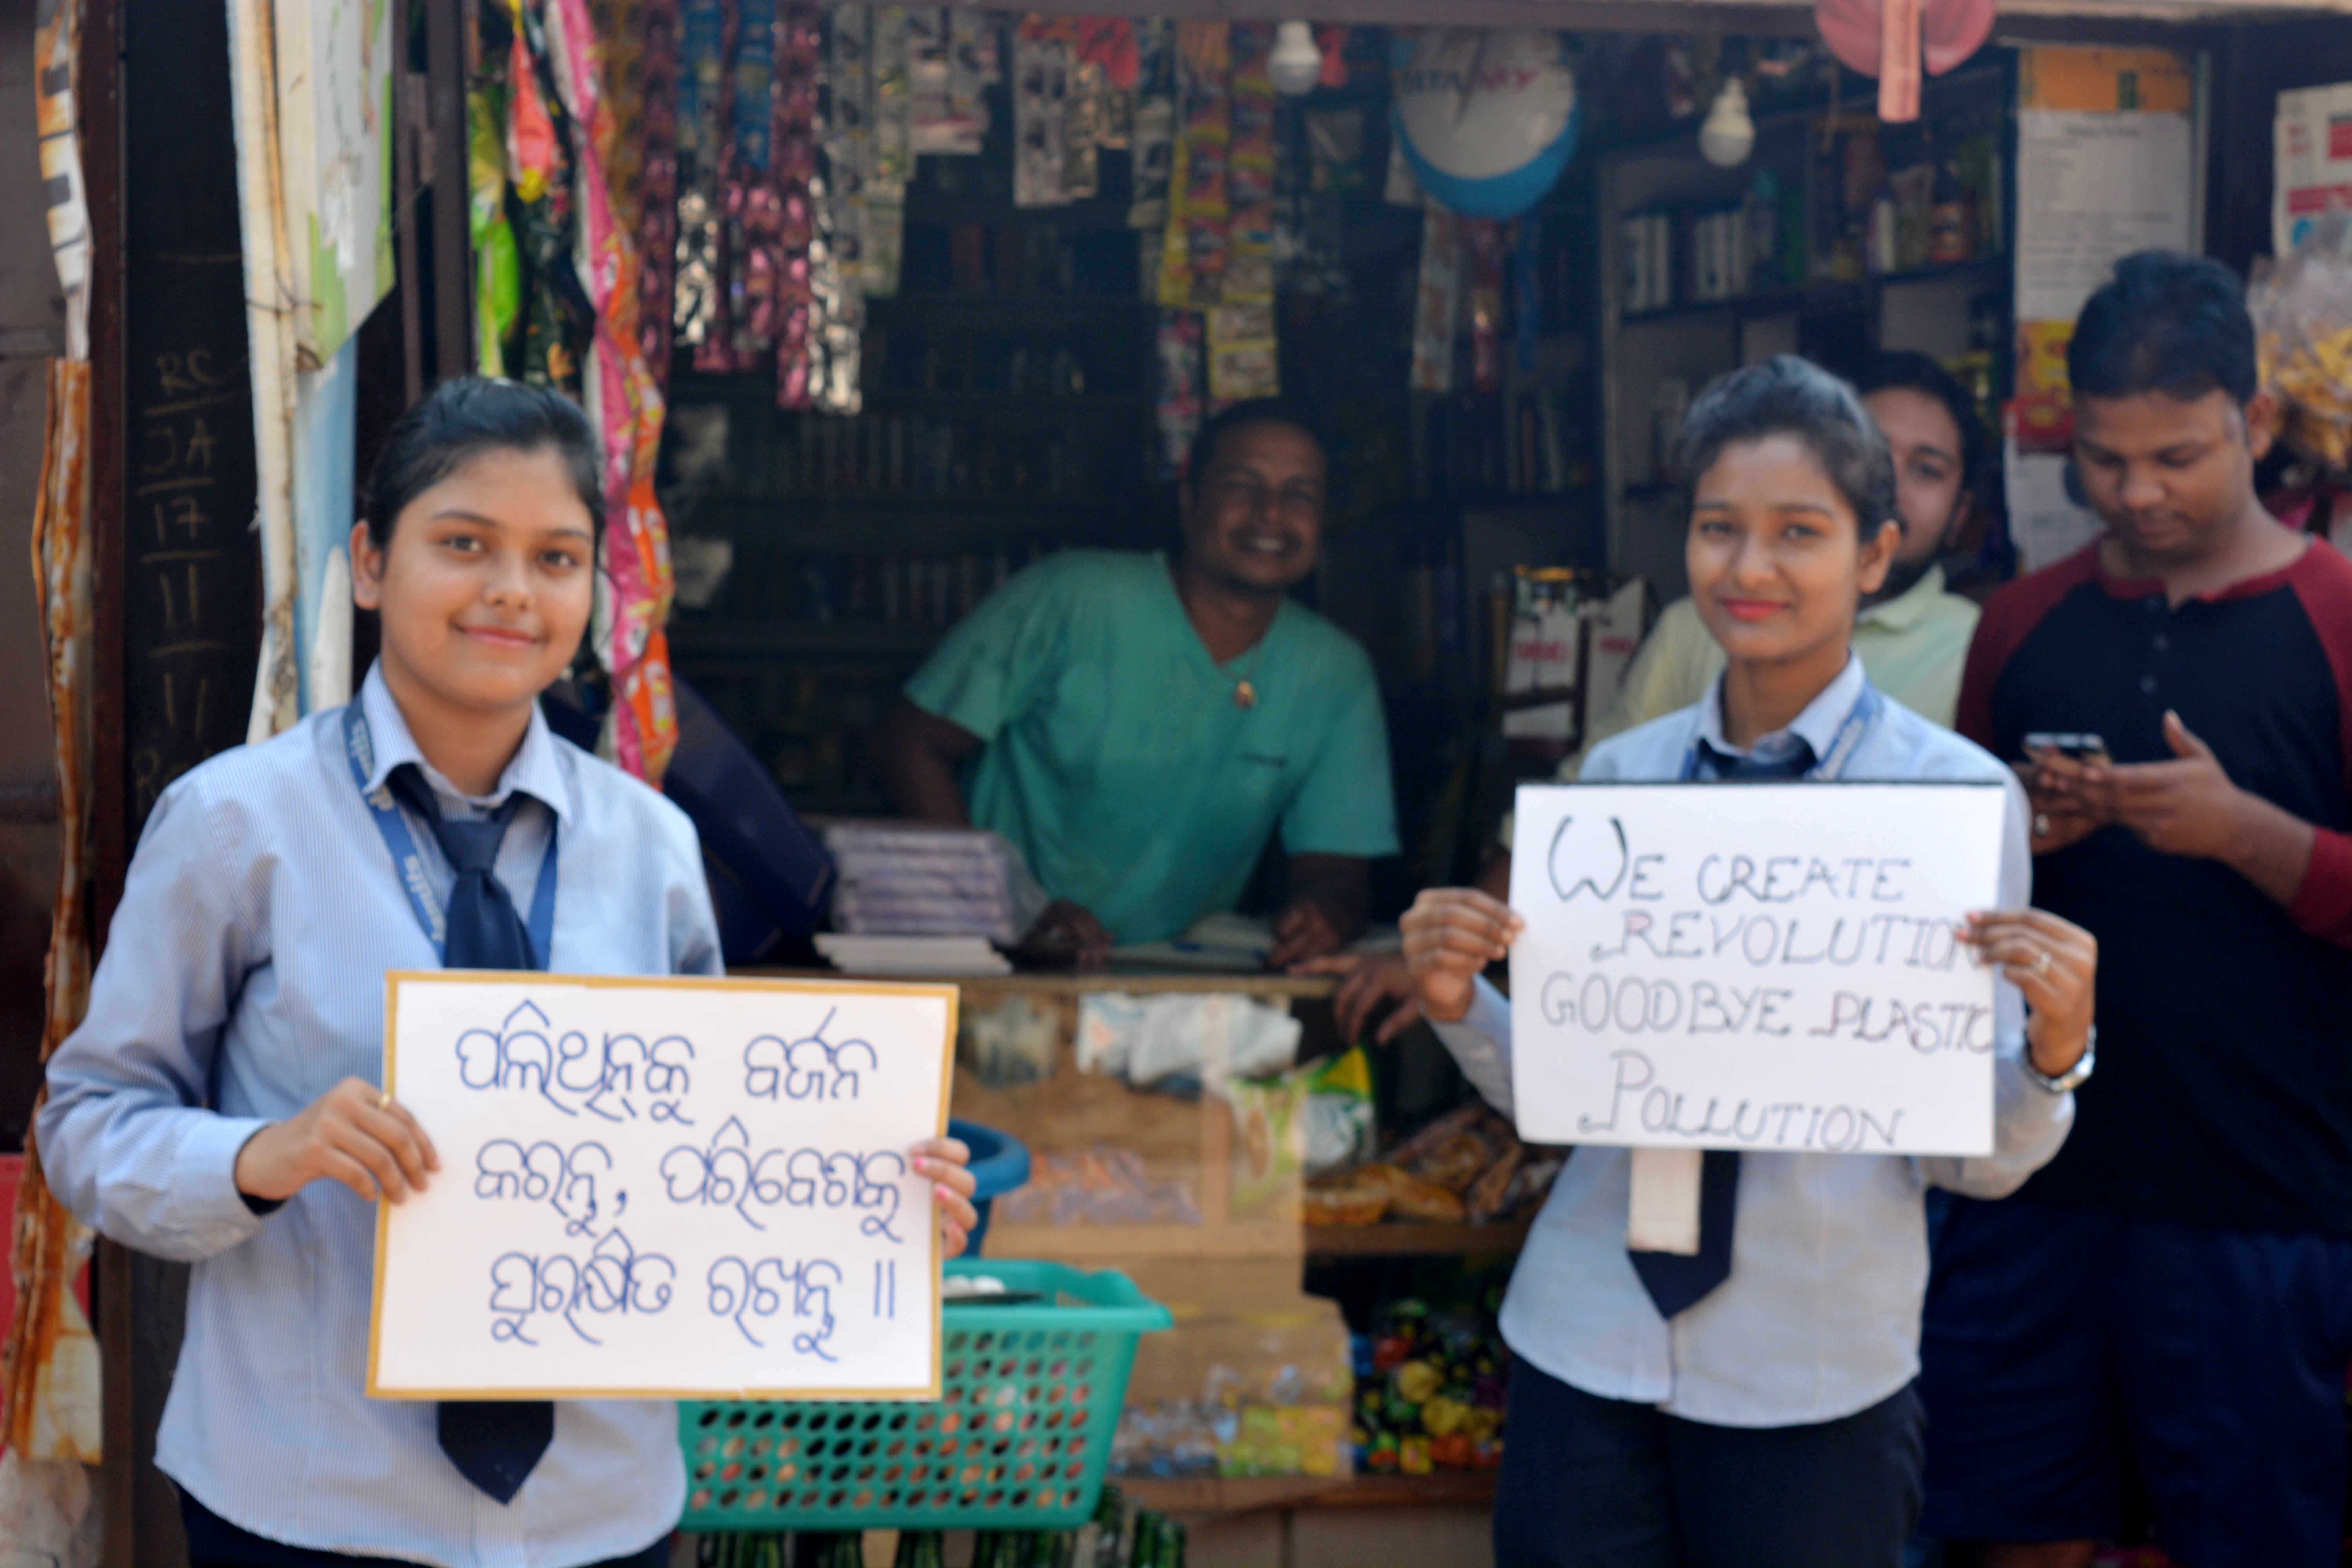 ପଲିଥିନ୍‌କୁ ବର୍ଜନ
କରନ୍ତୁ, ପରିବେଶକୁ
ସୁରକ୍ଷିତ ରଖନ୍ତୁ ॥
WE CREATE
REVOLUTION
GOODBYE PLASTIC
POLLUTION
RC
JA
17
11